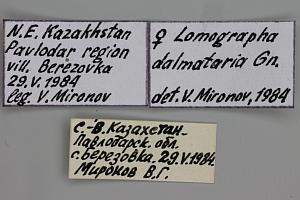 N.E. Kazakhstan
Pavlodar region
vill. Berezovka
29.V.1984
leg. V. Mironov
♀ Lomographa
dalmataria Gn.
det. V. Mironov, 1984
С.-В. Казахстан
Павлодарск. обл.
с. Березовка, 29.V.1984
Миронов В.Г.